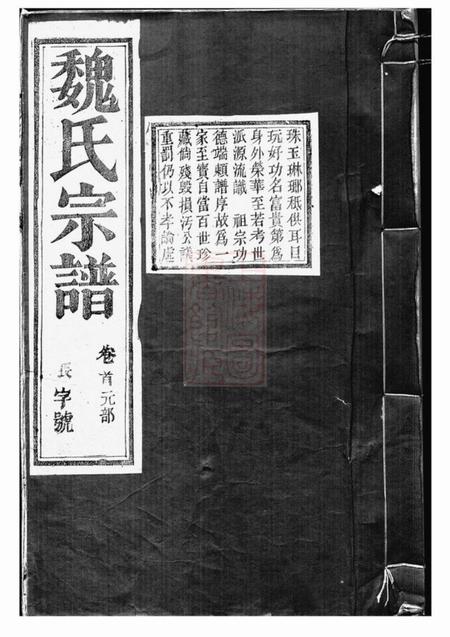 魏氏宗譜
卷首元部
長字號
珠玉琳瑯秖供耳目
玩好功名富貴第為
身外榮華至若考世
派源流識 祖宗功
德端頼譜序故為一
家至寶自當百世珍
藏倘殘毀損汚公議
重罰仍以不孝論處